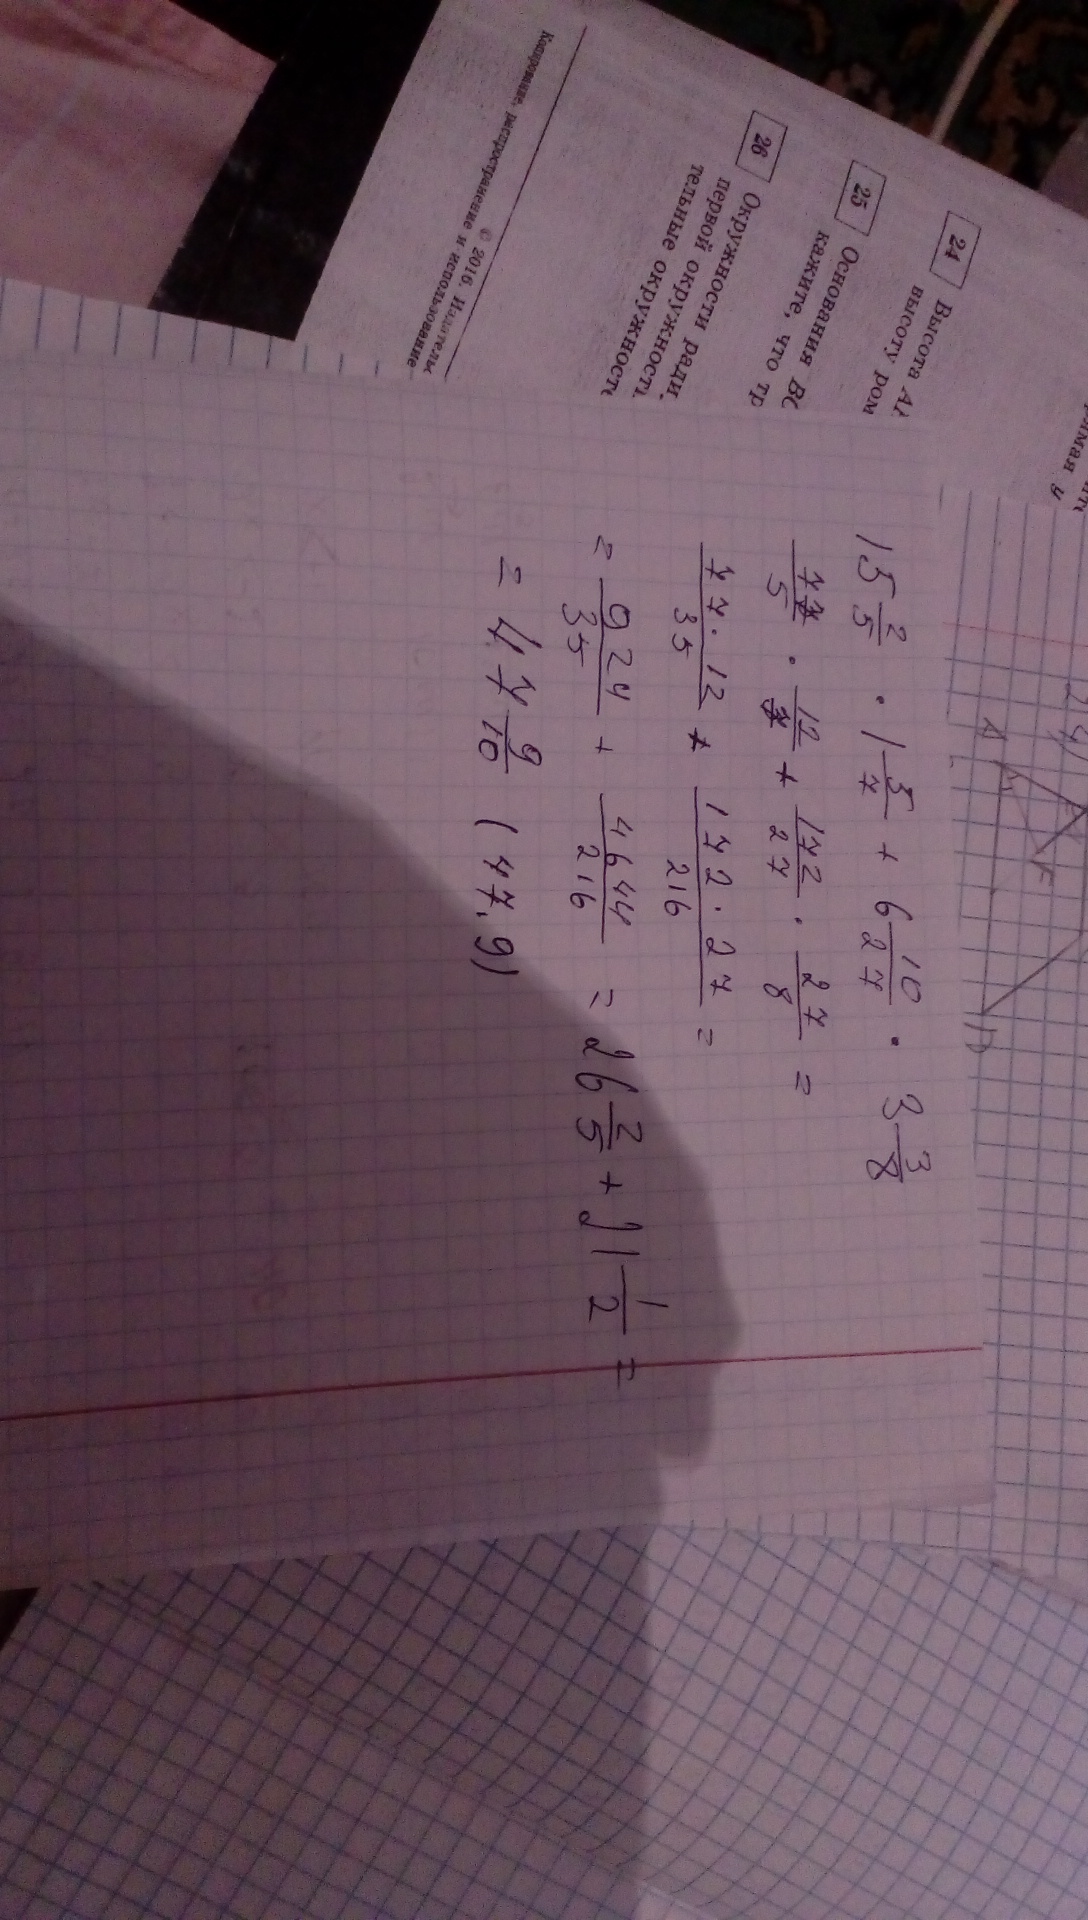 24 Высота
высоту ром
25 Основания ВС
кажите, что тр
26 Окружности ради
первой окружности
тельные окружност
© 2016. Издатель
Копирование, распространение и использование
15 2/5 · 1 5/7 + 6 10/27 · 3 3/8
77/5 · 12/7 + 172/27 · 27/8 =
77·12/35 + 172·27/216 =
= 924/35 + 4644/216 = 26 2/5 + 21 1/2 =
= 47 9/10 (47,9)